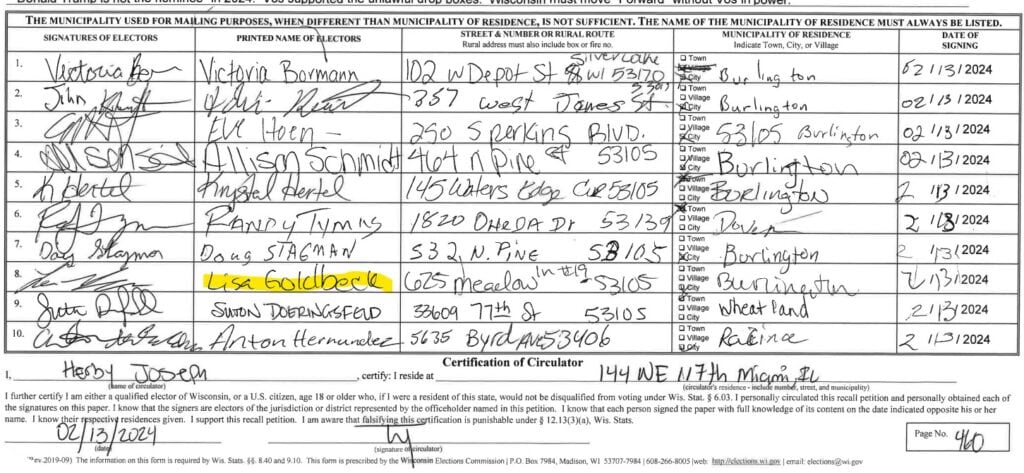 "Donald Trump is not the nominee" in 2024. "Vos supported the unlawful drop boxes. "Wisconsin must move "Forward" without Vos in power.
THE MUNICIPALITY USED FOR MAILING PURPOSES, WHEN DIFFERENT THAN MUNICIPALITY OF RESIDENCE, IS NOT SUFFICIENT. THE NAME OF THE MUNICIPALITY OF RESIDENCE MUST ALWAYS BE LISTED.
SIGNATURES OF ELECTORS PRINTED NAME OF ELECTORS STREET & NUMBER OR RURAL ROUTE Rural address must also include box or fire no. MUNICIPALITY OF RESIDENCE Indicate Town, City, or Village DATE OF SIGNING
1. Victoria Victoria Bormann 102 W Depot St Silver Lake WI 53170 Town Village City Burlington 02/13/2024
2. John 357 West James St. Town Village City Burlington 02/13/2024
3. Eve Hoen 250 S Perkins BLVD. Town Village City 53105 Burlington 02/13/2024
4. Allison Schmidt 464 N Pine St 53105 Town Village City Burlington 02/13/2024
5. K Hertel Krystal Hertel 145 Waters Edge Cir 53105 Town Village City Burlington 2/13/2024
6. RANDY TYMUS 1820 ONEDA Dr 53139 Town Village City Dover 2/13/2024
7. Doug Stagman Doug STAGMAN 532 N. PINE 53105 Town Village City Burlington 2/13/2024
8. Lisa Goldbeck 625 meadow ln #19 53105 Town Village City Burlington 2/13/2024
9. DOERINGSFELD 33609 77th St 53105 Town Village City Wheatland 2/13/2024
10. Anton Hernandez 5635 Byrd AVE 53406 Town Village City Racine 2/13/2024
Certification of Circulator
I, Hosby Joseph, certify: I reside at 144 NE 117th Miami, FL
(name of circulator) (circulator's residence - include number, street, and municipality)
I further certify I am either a qualified elector of Wisconsin, or a U.S. citizen, age 18 or older who, if I were a resident of this state, would not be disqualified from voting under Wis. Stat. § 6.03. I personally circulated this recall petition and personally obtained each of
the signatures on this paper. I know that the signers are electors of the jurisdiction or district represented by the officeholder named in this petition. I know that each person signed the paper with full knowledge of its content on the date indicated opposite his or her
name. I know their respective residences given. I support this recall petition. I am aware that falsifying this certification is punishable under § 12.13(3)(a), Wis. Stats.
02/13/2024
(date) (signature of circulator)
Page No. 460
rev.2019-09) The information on this form is required by Wis. Stats. §§. 8.40 and 9.10. This form is prescribed by the Wisconsin Elections Commission | P.O. Box 7984, Madison, WI 53707-7984 | 608-266-8005 |web: http://elections.wi.gov | email: elections@wi.gov